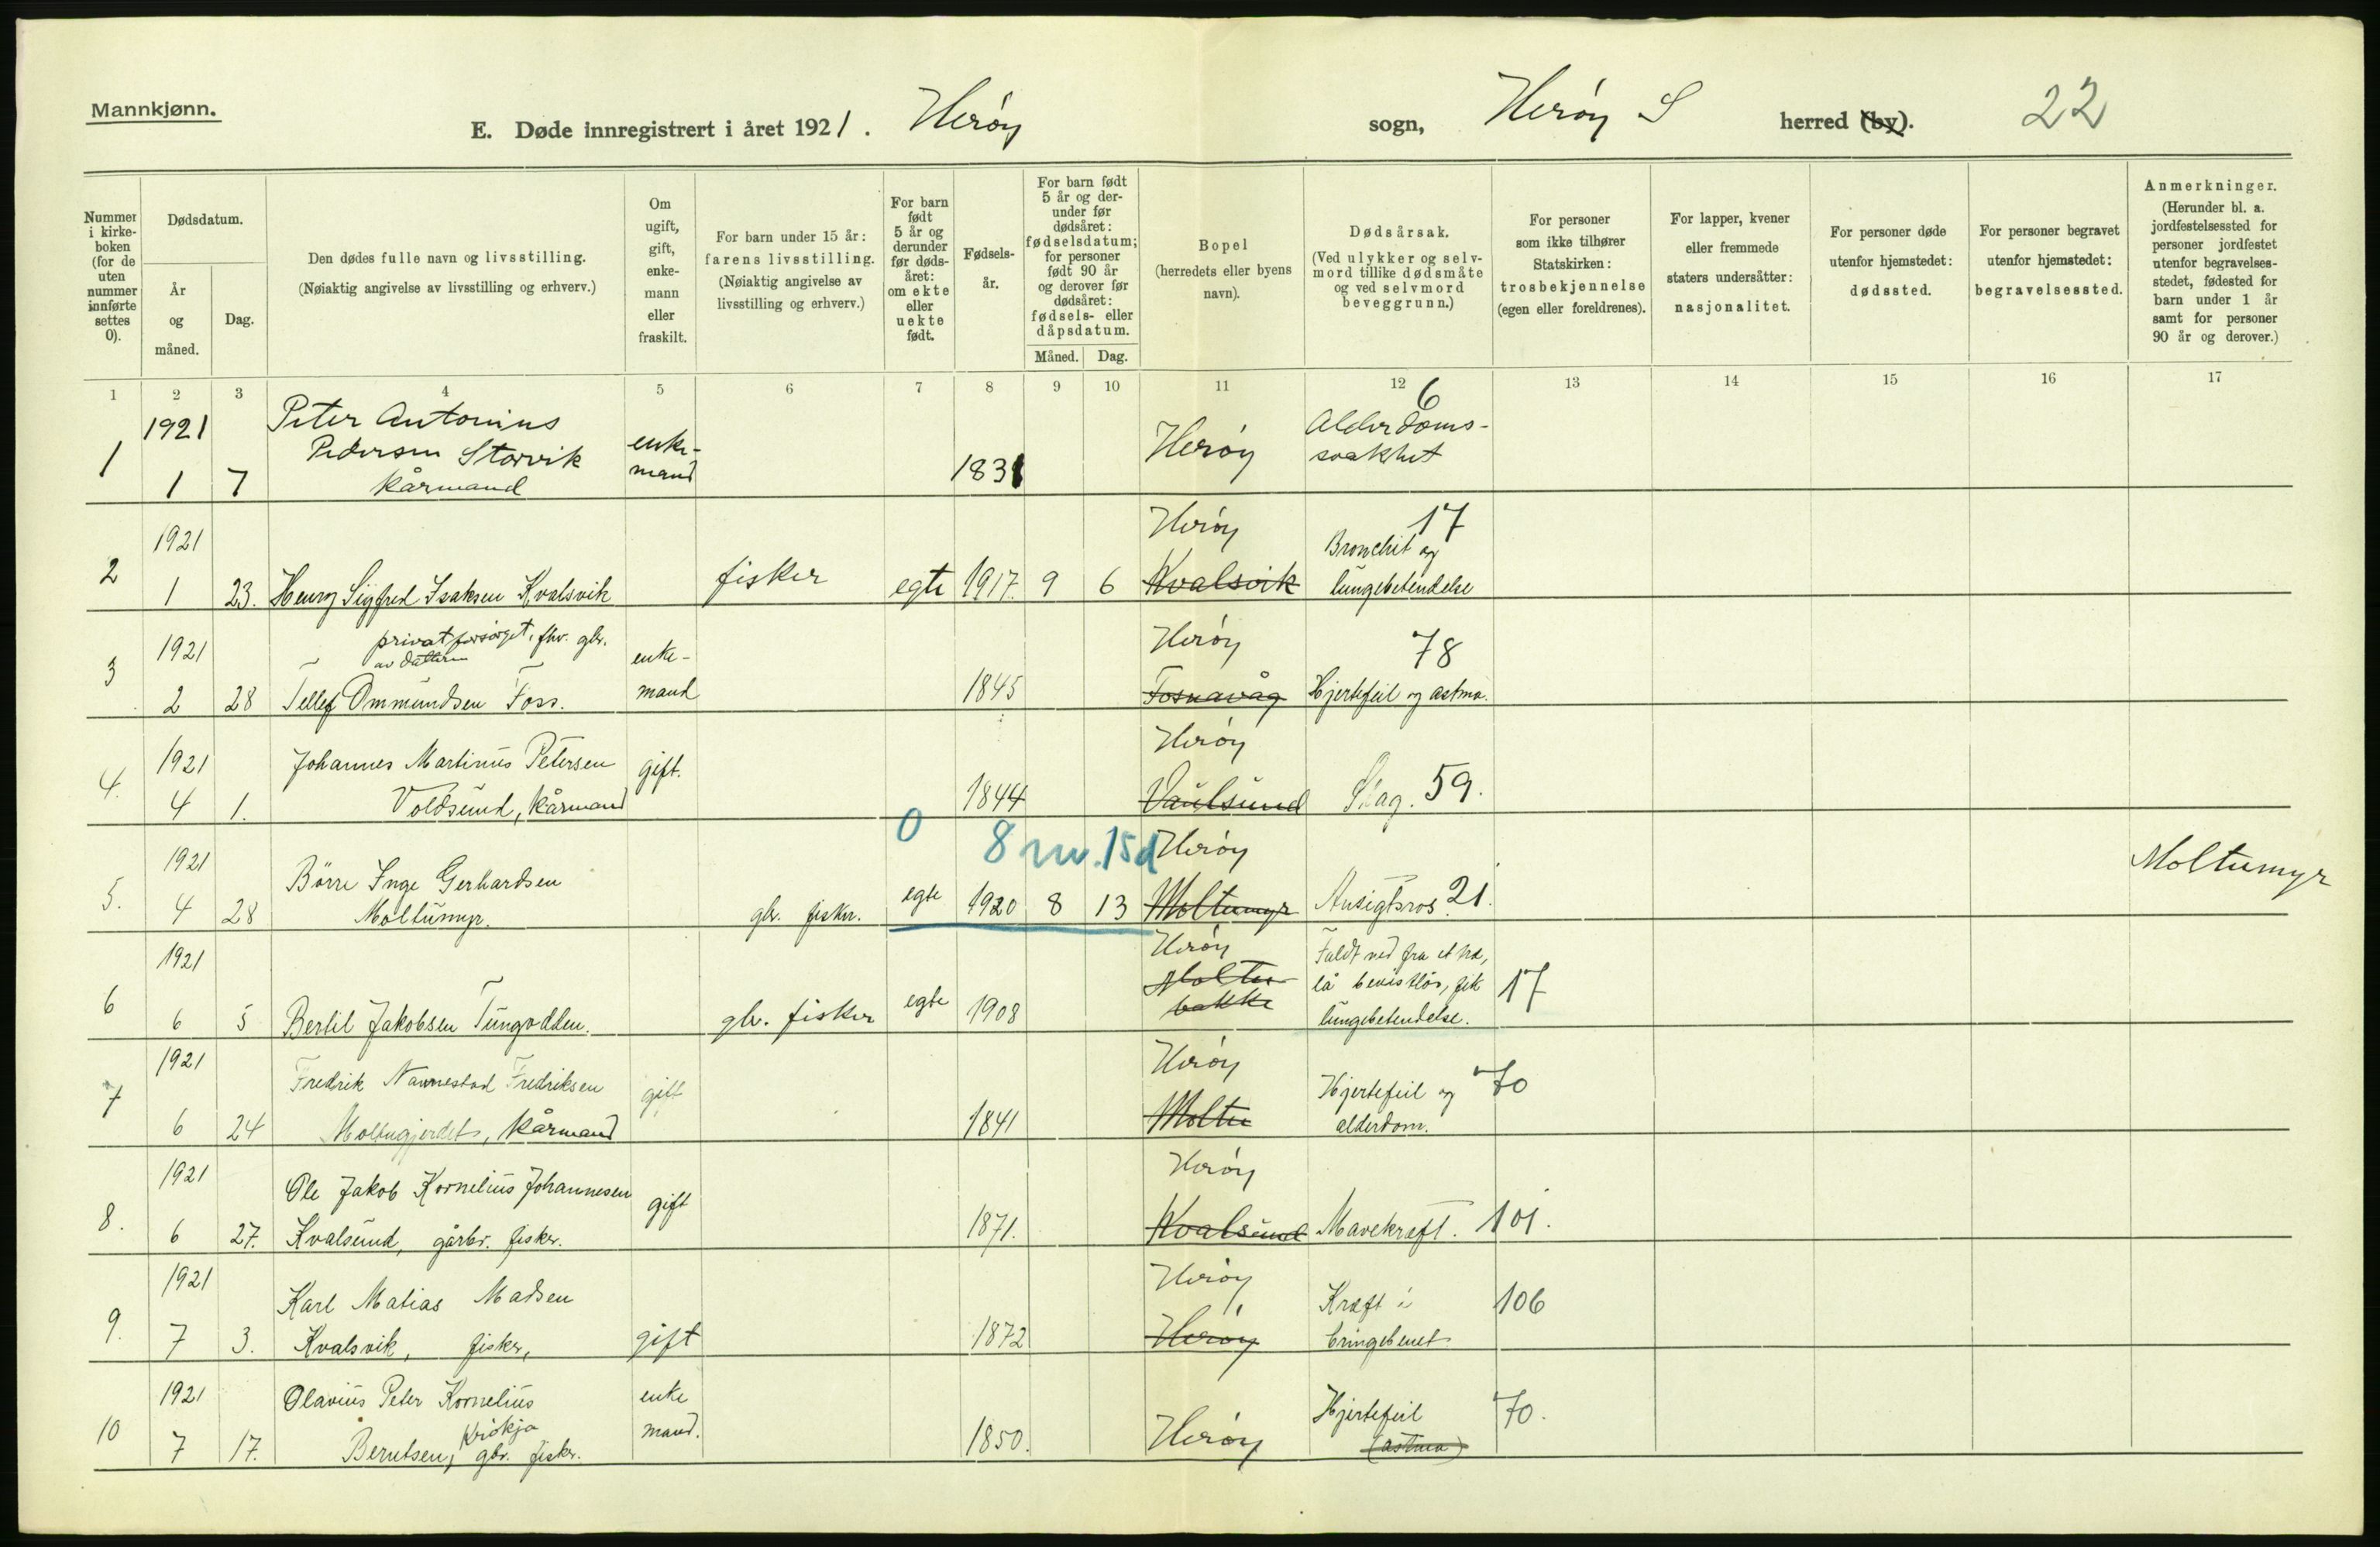 Mannkjønn.
E. Døde innregistrert i året 1921. Herøy sogn, Herøy S herred (by). 22
Nummer i kirke-boken (for de uten nummer innførte settes 0).
Dødsdatum.
År og måned.
Dag.
Den dødes fulle navn og livsstilling.
(Nøiaktig angivelse av livsstilling og erhverv.)
Om ugift, gift, enke-mann eller fraskilt.
For barn under 15 år: farens livsstilling.
(Nøiaktig angivelse av livsstilling og erhverv.)
For barn født 5 år og derunder før døds-året: om ekte eller uekte født.
Fødsels-år.
For barn født 5 år og der-under før dødsåret: fødselsdatum; for personer født 90 år og derover før dødsåret: fødsels- eller dåpsdatum.
Måned. Dag.
Bopel
(herredets eller byens navn).
Dødsårsak.
(Ved ulykker og selv-mord tillike dødsmåte og ved selvmord beveggrunn.)
For personer som ikke tilhører Statskirken: trosbekjennelse (egen eller foreldrenes).
For lapper, kvener eller fremmede staters undersåtter: nasjonalitet.
For personer døde utenfor hjemstedet: dødssted.
For personer begravet utenfor hjemstedet: begravelsessted.
Anmerkninger.
(Herunder bl. a. jordfestelsessted for personer jordfestet utenfor begravelses-stedet, fødested for barn under 1 år samt for personer 90 år og derover.)
1 2 3 4 5 6 7 8 9 10 11 12 13 14 15 16 17
1 1921 1 7 Peter Antonius Pedersen Storvik kårmand enke-mand 1831 Herøy Alderdoms-svakhet 6
2 1921 1 23. Henry Sigfred Isaksen Kvalsvik fisker egte 1917. 9 6 Herøy Kvalsvik Bronchit og lungebetendelse 17
3 1921 2 28 privat forsørget, fhv. gbr. av datteren Tellef Ommundsen Foss. enke-mand 1845 Herøy Fosnavåg Hjertefeil og astma. 78
4. 1921 4 1. Johannes Martinus Petersen Voldsund, kårmand gift. 1844 Herøy Vaulsund Slag. 59.
5. 1921 4 28 Börre Inge Gerhardsen Moltumyr. gbr. fisker. 0 egte 1920 8 13 8 m. 15 d Herøy Moltumyr Ansigtsros 21. Moltumyr
6 1921 6 5 Bertil Jakobsen Tungodden. gbr. fisker egte 1908 Herøy Moltu-bakke Faldt ned fra et træ, lå bevistløs, fik lungebetendelse. 17
7 1921 6 24 Fredrik Nannestad Fredriksen Moltugjerdet, kårmand gift 1841 Herøy Moltu Hjertefeil og alderdom. 70
8. 1921 6 27. Ole Jakob Kornelius Johannesen Kvalsund, gårbr. fisker. gift 1871. Herøy Kvalsund Mavekræft. 101.
9. 1921 7 3. Karl Matias Madsen Kvalsvik, fisker, gift 1872 Herøy Herøy Kræft i bringebenet 106
10 1921 7 17. Olavius Peter Kornelius Berntsen, Krøkja gbr. fisker. enke mand. 1850. Herøy Hjertefeil (astma) 70.